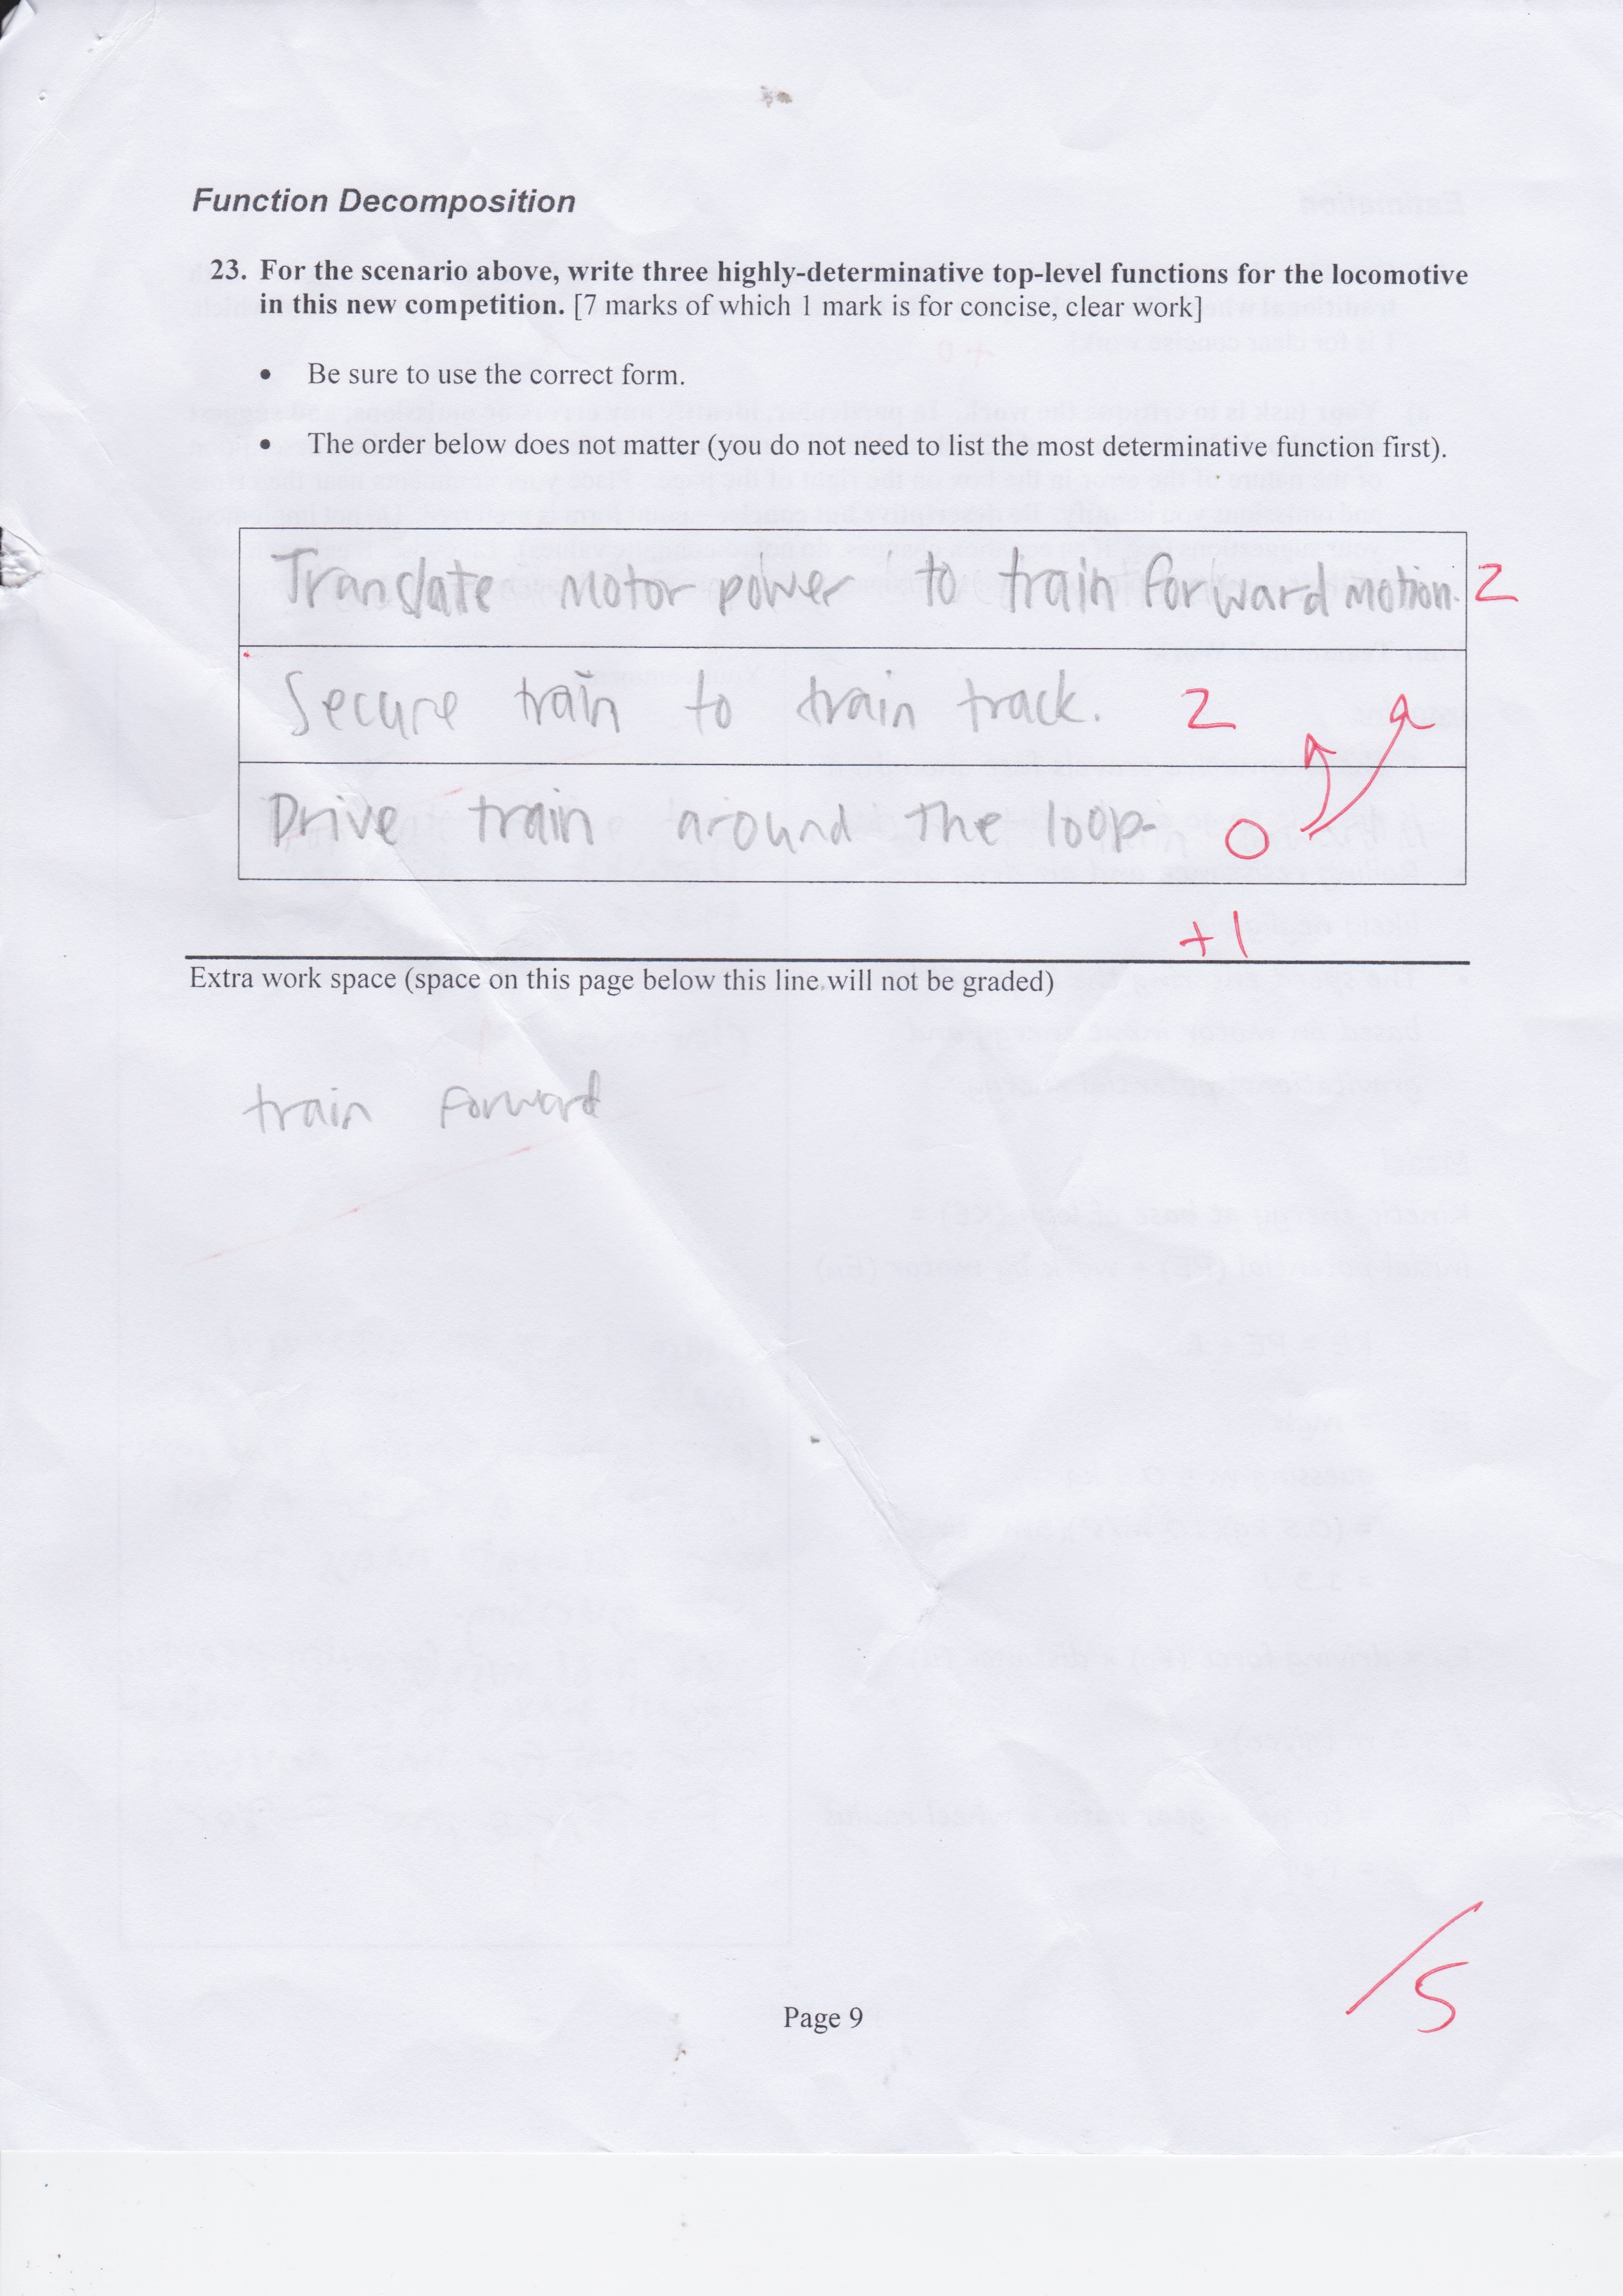 Function Decomposition
23. For the scenario above, write three highly-determinative top-level functions for the locomotive
in this new competition. [7 marks of which 1 mark is for concise, clear work]
• Be sure to use the correct form.
• The order below does not matter (you do not need to list the most determinative function first).
Translate motor power to train forward motion. 2
Secure train to train track. 2
Drive train around the loop. 0
+1
Extra work space (space on this page below this line will not be graded)
train forward
/5
Page 9